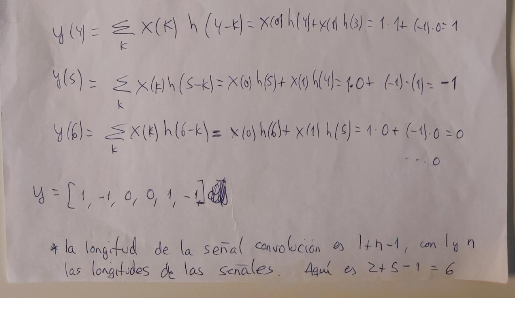 y(4) = Σ x(k) h(4-k) = x(0)h(4)+x(1)h(3) = 1·1+(-1)·0 = 1
k
y(5) = Σ x(k) h(5-k) = x(0)h(5)+x(1)h(4) = 1·0+(-1)·(1) = -1
k
y(6) = Σ x(k) h(6-k) = x(0)h(6)+x(1)h(5) = 1·0+(-1)·0 = 0
k
...0
y = [1, -1, 0, 0, 1, -1]
* la longitud de la señal convolución es l+n-1, con l y n
las longitudes de las señales. Aquí es 2+5-1 = 6